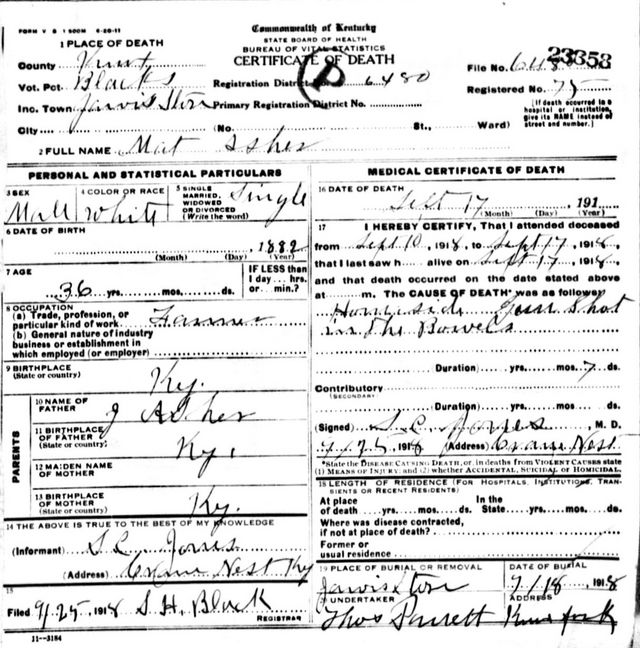 FORM V S 1 500M 6-20-11
Commonwealth of Kentucky
STATE BOARD OF HEALTH
BUREAU OF VITAL STATISTICS
CERTIFICATE OF DEATH
1 PLACE OF DEATH
County Knox
Vot. Pct. Blacks
Inc. Town Jarvis Store
City (No. St., Ward)
Registration District No. 6480
Primary Registration District No.
File No. 23353
Registered No. 75
[If death occurred in a hospital or institution, give its NAME instead of street and number.]
2 FULL NAME Mat Asher
PERSONAL AND STATISTICAL PARTICULARS
3 SEX Male
4 COLOR OR RACE White
5 SINGLE MARRIED, WIDOWED OR DIVORCED (Write the word) Single
6 DATE OF BIRTH 1882
(Month) (Day) (Year)
7 AGE 36 yrs. mos. ds.
IF LESS than 1 day... hrs. or min.?
8 OCCUPATION
(a) Trade, profession, or particular kind of work Farmer
(b) General nature of industry business or establishment in which employed (or employer)
9 BIRTHPLACE (State or country) Ky.
PARENTS
10 NAME OF FATHER J Asher
11 BIRTHPLACE OF FATHER (State or country) Ky.
12 MAIDEN NAME OF MOTHER
13 BIRTHPLACE OF MOTHER (State or country) Ky.
14 THE ABOVE IS TRUE TO THE BEST OF MY KNOWLEDGE
(Informant) S. C. Jones
(Address) Crane Nest Ky
15
Filed 9/25, 1918 S. H. Black
REGISTRAR
11-3184
MEDICAL CERTIFICATE OF DEATH
16 DATE OF DEATH
Sept 17 191
(Month) (Day) (Year)
17 I HEREBY CERTIFY, That I attended deceased
from Sept 10, 1918, to Sept 17, 1918,
that I last saw h alive on Sept 17, 1918,
and that death occurred on the date stated above
at m. The CAUSE OF DEATH* was as follows:
Homicide Gun Shot
in the Bowels
(Duration) yrs. mos. 7 ds.
Contributory
(SECONDARY)
(Duration) yrs. mos. ds.
(Signed) S. C. Jones, M. D.
1918 (Address) Crane Nest
*State the DISEASE CAUSING DEATH, or, in deaths from VIOLENT CAUSES state (1) MEANS OF INJURY; and (2) whether ACCIDENTAL, SUICIDAL or HOMICIDAL.
18 LENGTH OF RESIDENCE (FOR HOSPITALS, INSTITUTIONS, TRANSIENTS OR RECENT RESIDENTS)
At place of death yrs. mos. ds. In the State yrs. mos. ds.
Where was disease contracted, if not at place of death?
Former or usual residence
19 PLACE OF BURIAL OR REMOVAL
Jarvis Store
DATE OF BURIAL
1918
20 UNDERTAKER
Thos Parrett
ADDRESS